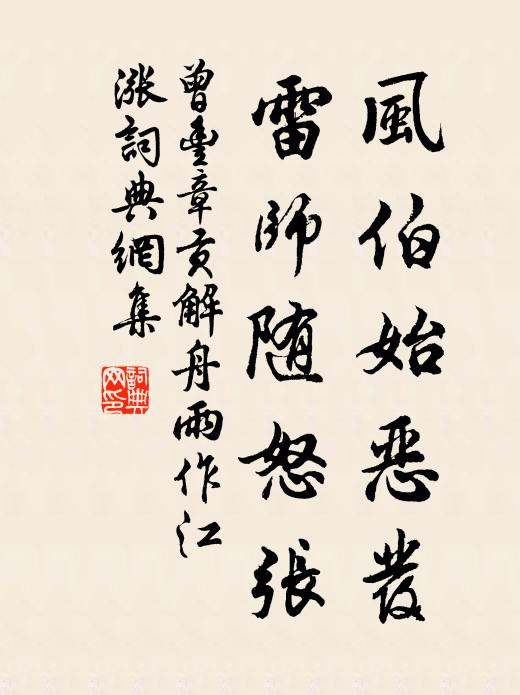 風伯始惡發
雷師随怒張
曾豐章貢解舟雨作江
漲詞典網集
詞典
网印